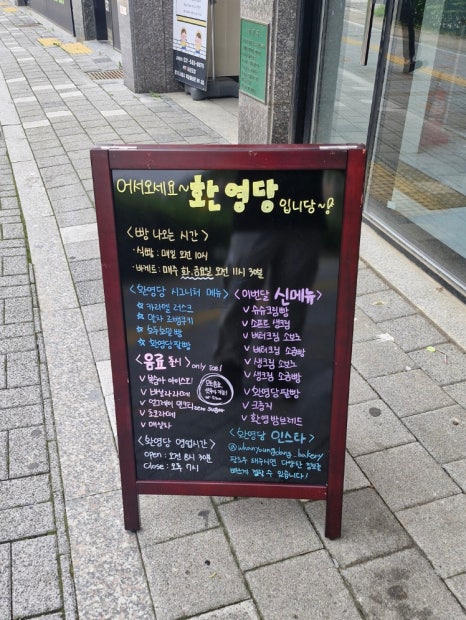 어서오세요~ 환영당 입니당~♪
<빵 나오는 시간>
·식빵 : 매일 오전 10시
·바게트 : 매주 화, 금요일 오전 11시 30분
<환영당 시그니처 메뉴>
☆ 카라멜 러스크
☆ 말차 르뱅쿠키
☆ 호두호밀빵
☆ 환영당팥빵
<음료 출시> only ice!
V 복숭아 아이스티
V 매실라떼
V 초코라떼
V 매실차
<이번달 신메뉴>
V 슈슈크림빵
V 소프트 생크림
V 버터크림 소보로
V 버터크림 소금빵
V 생크림 소보로
V 생크림 소금빵
V 환영당팥빵
V 크룽지
V 환영밤브레드
<환영당 영업시간>
open : 오전 8시 30분
close : 오후 7시
<환영당 인스타>
@whanyoungdang_bakery
팔로우 해주시면 다양한 정보를
빠르게 접할 수 있습니다!